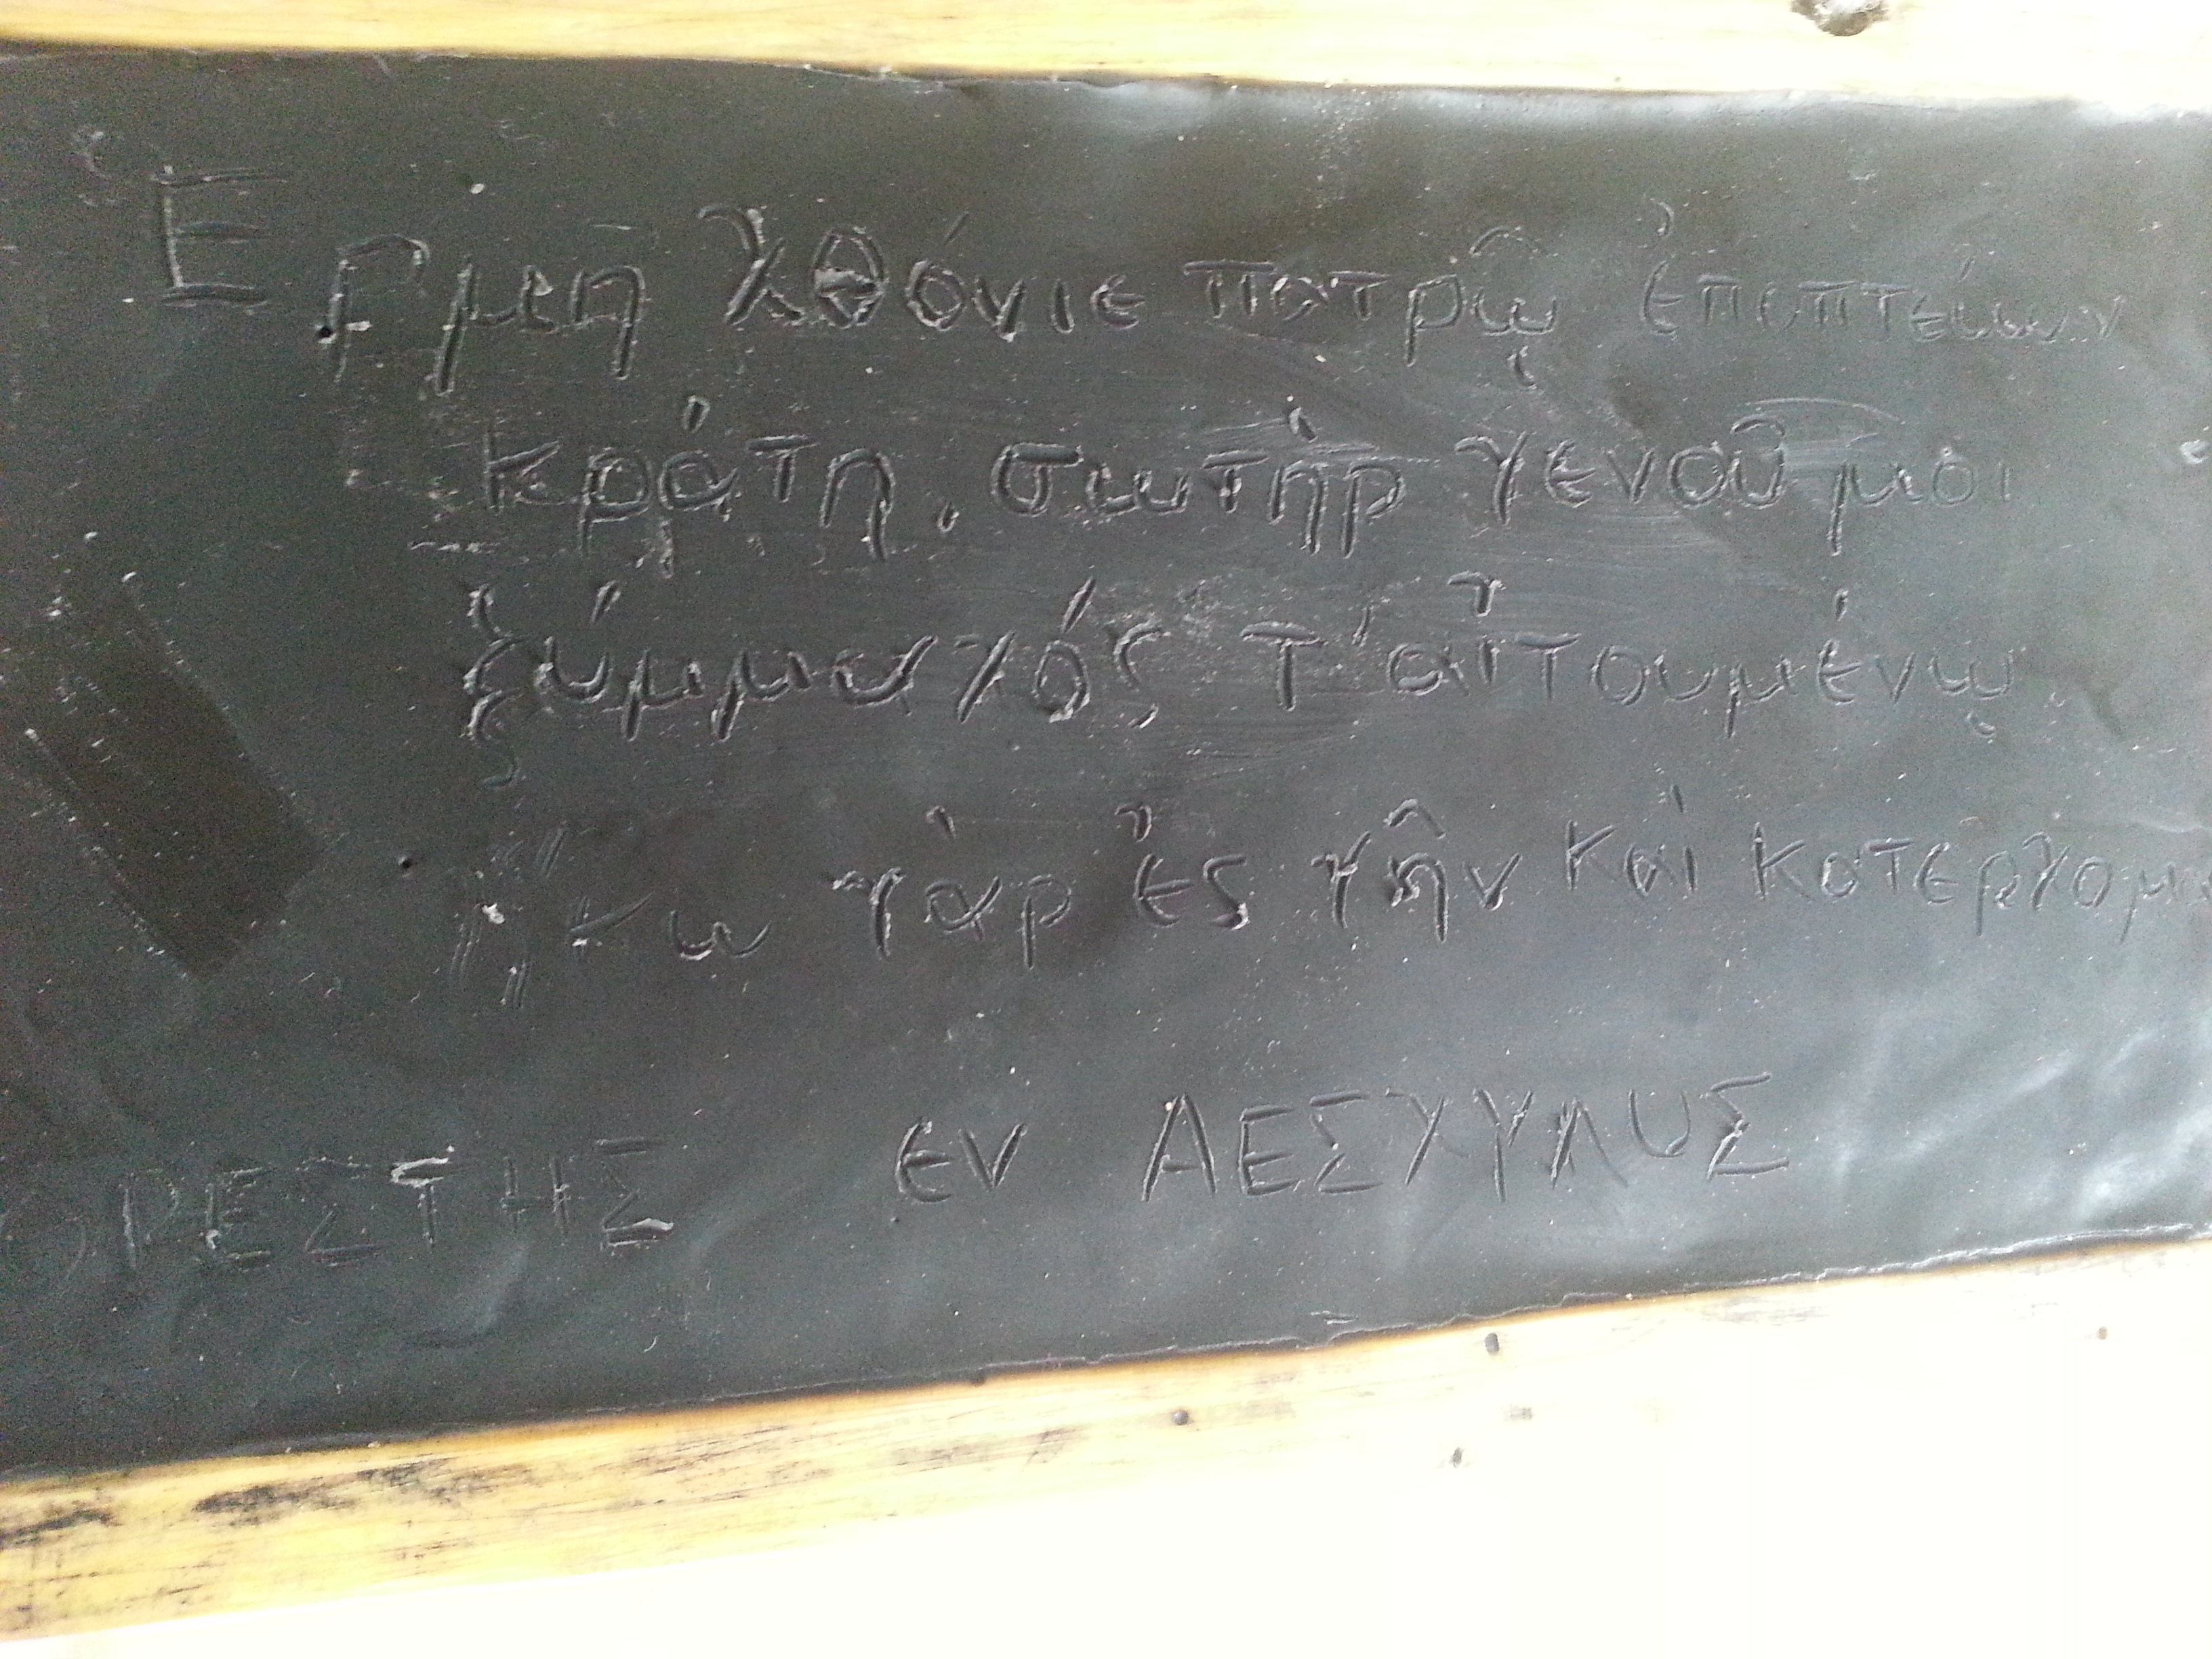 Ἑρμη χθόνιε πατρῷ ἐποπτεύων
κράτη, σωτὴρ γενοῦ μοι
ξύμμαχός τ'αἰτουμένῳ
ἥκω γὰρ ἐς γῆν καὶ κατέρχομ
ΟΡΕΣΤΗΣ εν ΑΕΣΧΥΛUΣ